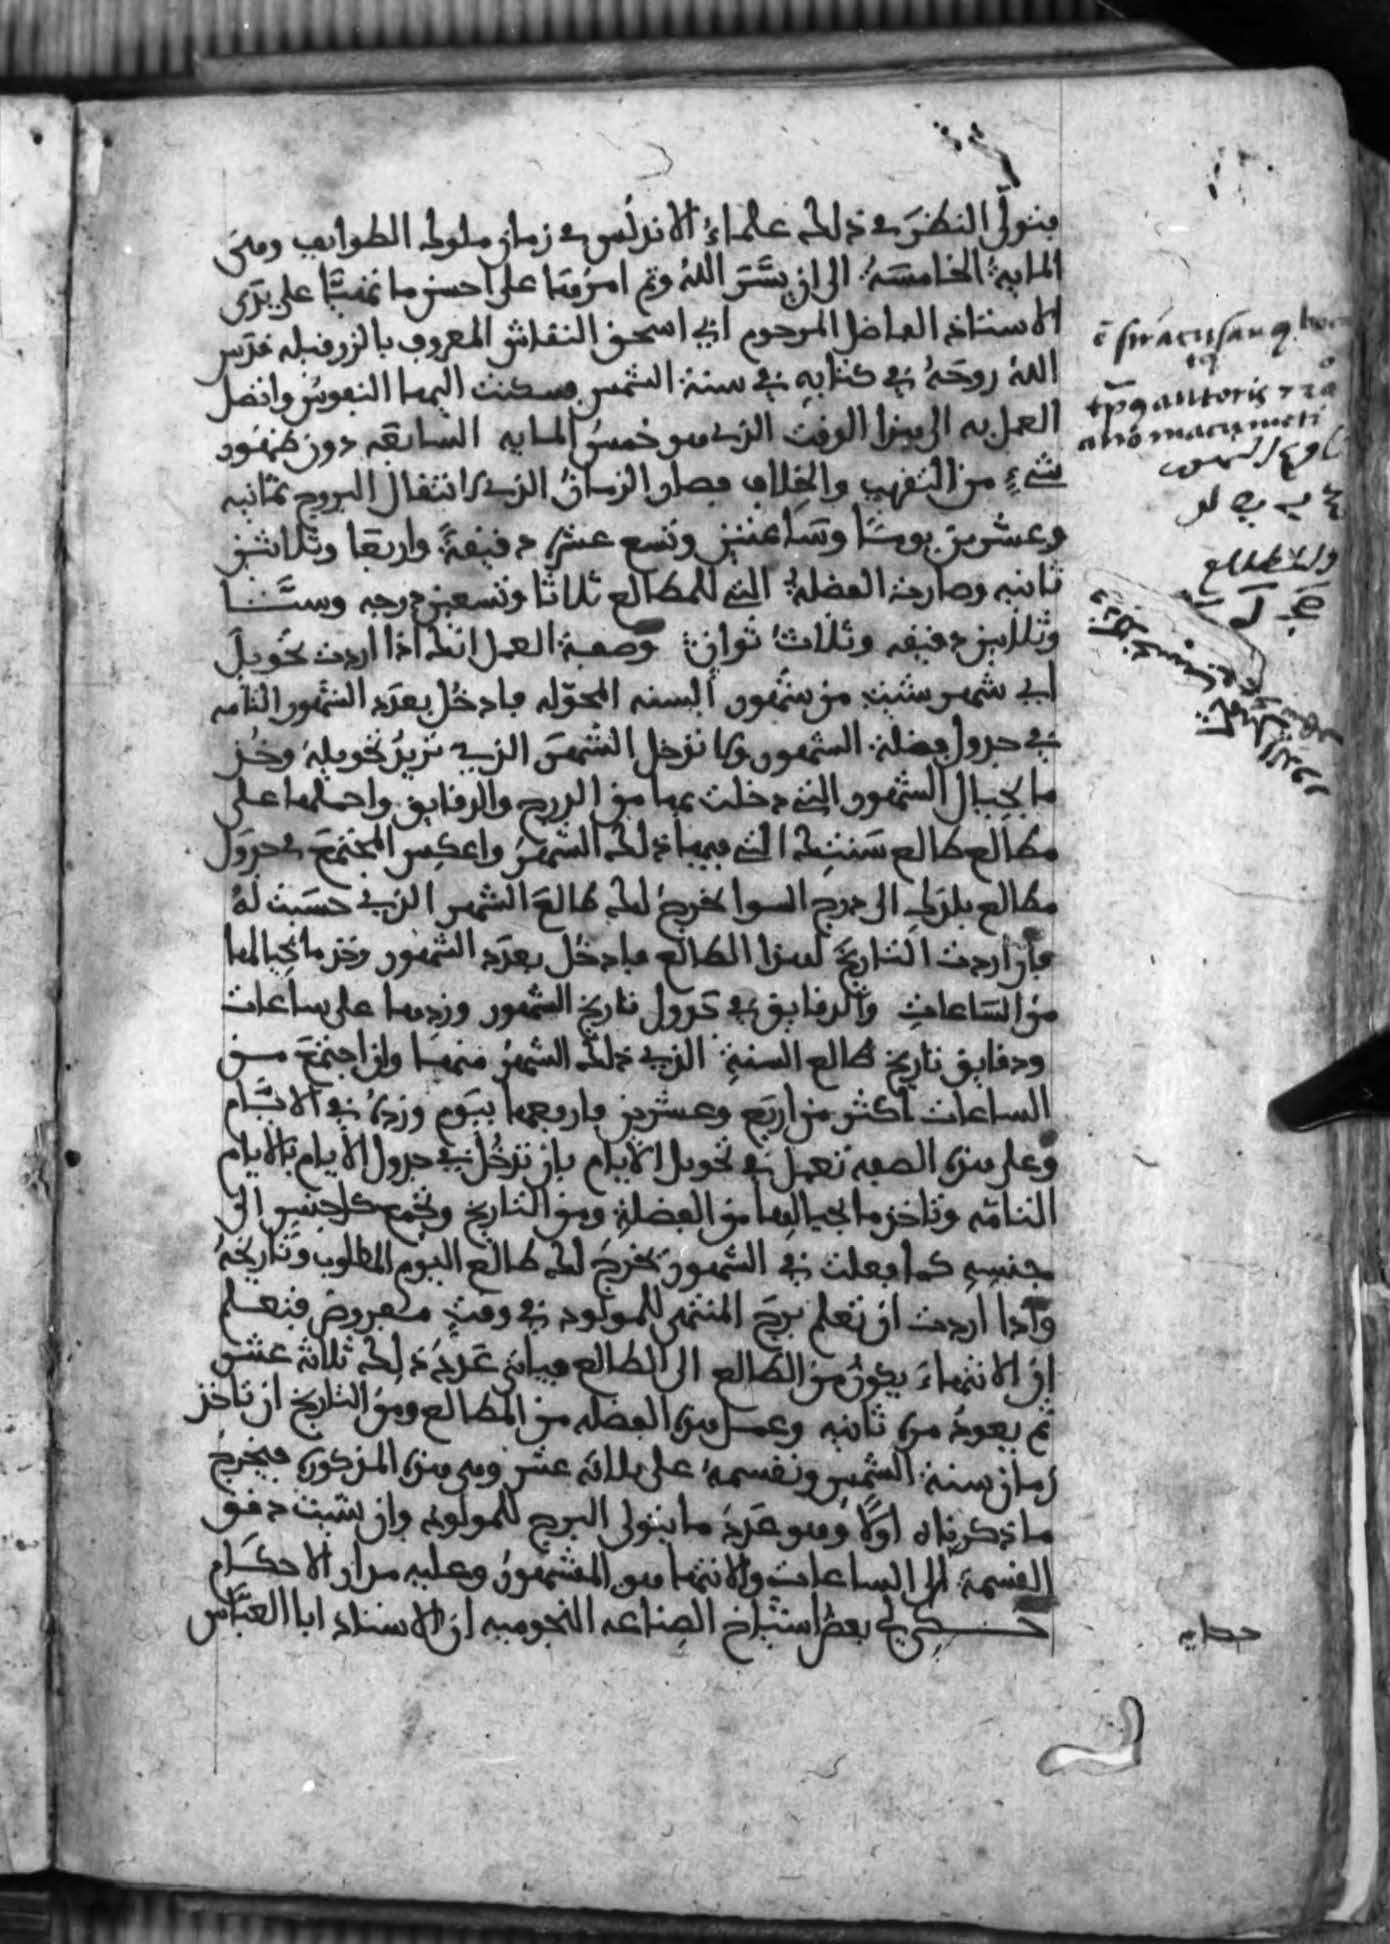 فتولى النظر في ذلك علماء الاندلس في زمان ملوك الطوايف وهي
الماية الخامسة الى ان يسر الله وتم امرها على احسن ما تهيا على يدي
الاستاذ الفاضل المرحوم ابي اسحق النقاش المعروف بالزرقيله قدس
الله روحه في كتابه في سنة الشمس فسكنت اليها النفوس واتصل
العمل به الى هذا الوقت الذي هو خمس الماية السابعة دون ظهور
شيء من التغيير والخلاف فصار الزمان الذي لانتقال البروج ثمانيه
وعشرين يوما وساعتين وتسع عشرة دقيقة واربعا وثلاثين
ثانيه وصارت الفضلة التي للمطالع ثلاثا وتسعين درجه وستا
وثلاثين دقيقه وثلاث ثوان وصفة العمل انك اذا اردت تحويل
اي شهر شيت من شهور السنه المحوله فادخل بعدد الشهور التامه
في جدول فضلة الشهور ولا تدخل الشهر الذي تريد تحويله وخذ
ما بحيال الشهور التي دخلت بها من الدرج والدقايق واحملها على
مطالع طالع سنتك التي فيها ذلك الشهر واعكس المجتمع في جدول
مطالع بلدك الى درج السوا يخرج لك طالع الشهر الذي حسبت له
فان اردت التاريخ لهذا الطالع فادخل بعدد الشهور وخذ ما بحيالها
من الساعات والدقايق في جدول تاريخ الشهور وزدها على ساعات
ودقايق تاريخ طالع السنة الذي ذلك الشهر منها وان اجتمع من
الساعات اكثر من اربع وعشرين فارفعها بيوم وزده في الايام
وعلى هذه الصفه تعمل في تحويل الايام بان تدخل في جدول الايام بالايام
التامه وتاخذ ما بحيالها من الفضلة ومن التاريخ وتجمع كل جنس الى
جنسه كما فعلت في الشهور يخرج لك طالع اليوم المطلوب وتاريخه
واذا اردت ان تعلم برج المنتهى للمولود في وقت مفروض فتعلم
ان الانتهاء يكون من الطالع الى الطالع فياتي عدد ذلك ثلاثه عشر
ثم يعود مرة ثانيه وعمل هذه الفضله من المطالع ومن التاريخ ان تاخذ
زمان سنة الشمس وتقسمه على ثلاثة عشر وهي هذه المذكورة فيخرج
ما ذكرناه اولا وهو عدد ما يتولى البرج للمولود وان شيت دقق
القسمة الى الساعات والانتها هو المشهور وعليه مدار الاحكام
حكى لي بعض اشياخ الصناعه النجوميه ان الاستاذ ابا العباس
حكايه